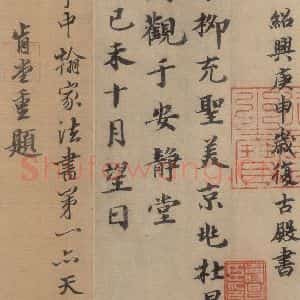 紹興庚申歲復古殿書
柳充聖美京兆杜昱
觀于安靜堂
己未十月望日
中翰家法書第一 天
肯堂重題